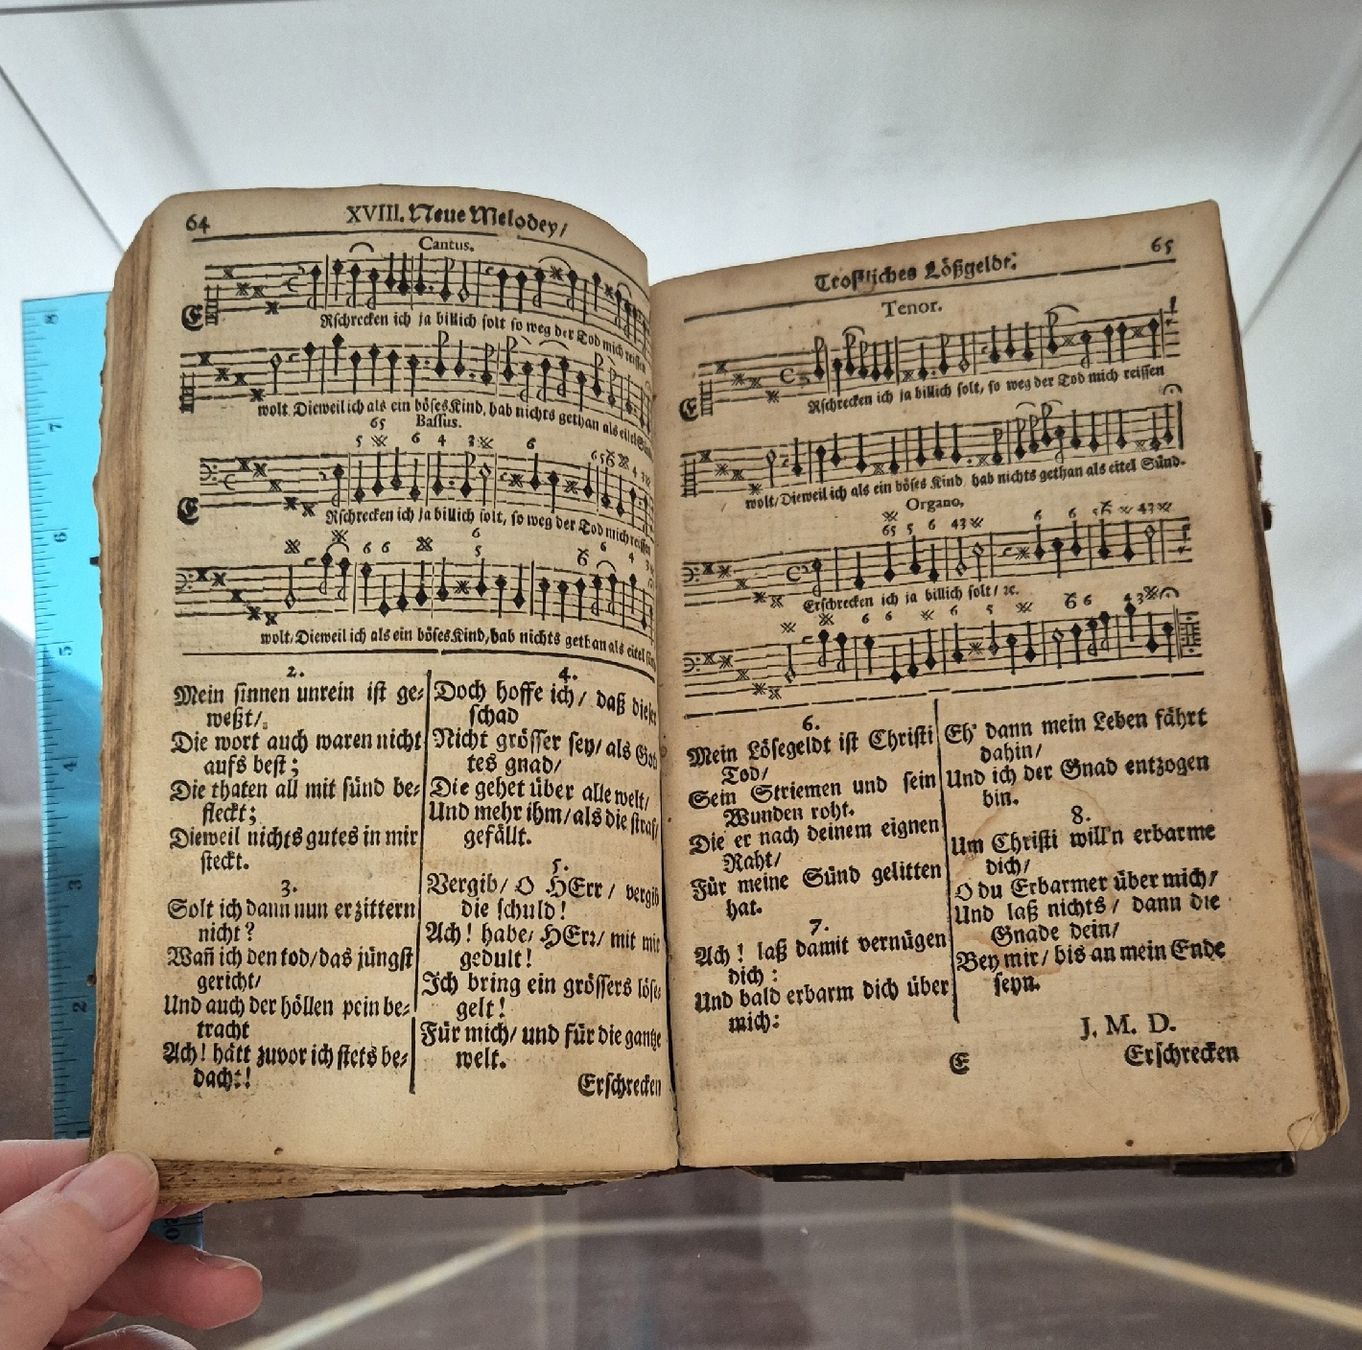 64
XVIII. Neue Melodey/
Cantus.
ERschrecken ich ja billich solt so weg der Tod mich reissen
wolt Dieweil ich als ein böses Kind, hab nichts gethan als eitel Sünd
65 Bassus.
5 6 4 3 6
ERschrecken ich ja billich solt, so weg der Tod mich reissen
6 6 6 5 6 4
wolt/Dieweil ich als ein böses Kind, hab nichts gethan als eitel
2.
Mein sinnen unrein ist ge-
weßt/
Die wort auch waren nicht
aufs best;
Die thaten all mit sünd be-
fleckt;
Dieweil nichts gutes in mir
steckt.
3.
Solt ich dann nun erzittern
nicht?
Wañ ich den tod/das jüngst
gericht/
Und auch der höllen pein be-
tracht
Ach! hätt zuvor ich stets be-
dacht!
4.
Doch hoffe ich/ daß dieser
schad
Nicht grösser sey/ als Got-
tes gnad/
Die gehet über alle welt/
Und mehr ihm/als die straf/
gefällt.
5.
Vergib/ O HErr/ vergib
die schuld!
Ach! habe/ HErr/ mit mir
gedult!
Ich bring ein grössers löse-
gelt!
Für mich/ und für die gantze
welt.
Erschrecken
65
Trostliches Lößgeldt.
Tenor.
ERschrecken ich ja billich solt, so weg der Tod mich reissen
wolt/Dieweil ich als ein böses Kind hab nichts gethan als eitel Sünd.
Organo,
65 5 6 43 6 6 5 43
Erschrecken ich ja billich solt/ ꝛc.
6 6 6 5 6 6 43
6.
Mein Lösegeldt ist Christi
Tod/
Sein Striemen und sein
Wunden roht.
Die er nach deinem eignen
Raht/
Für meine Sünd gelitten
hat.
7.
Ach! laß damit vernügen
dich:
Und bald erbarm dich über
mich:
Eh' dann mein Leben fährt
dahin/
Und ich der Gnad entzogen
bin.
8.
Um Christi will'n erbarme
dich/
O du Erbarmer über mich/
Und laß nichts/ dann die
Gnade dein/
Bey mir/ bis an mein Ende
seyn.
J. M. D.
E
Erschrecken
8
7
6
5
4
3
2